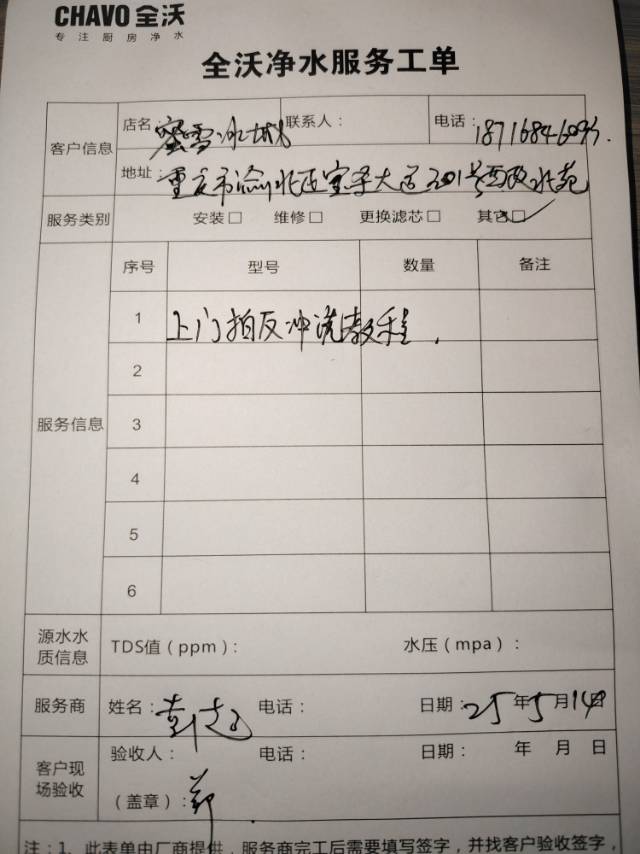 CHAVO 全沃
专注厨房净水
全沃净水服务工单
客户信息
店名:蜜雪冰城
联系人:
电话:
地址:重庆市渝北区
服务类别
安装□ 维修□ 更换滤芯□ 其它□✓
服务信息
序号 型号 数量 备注
1 上门拍反冲洗教程.
2
3
4
5
6
源水水质信息
TDS值(ppm): 水压(mpa):
服务商
姓名: 电话: 日期:25年5月14日
客户现场验收
验收人: 电话: 日期: 年 月 日
(盖章):
注:1、此表单由厂商提供,服务商完工后需要填写签字,并找客户验收签字,